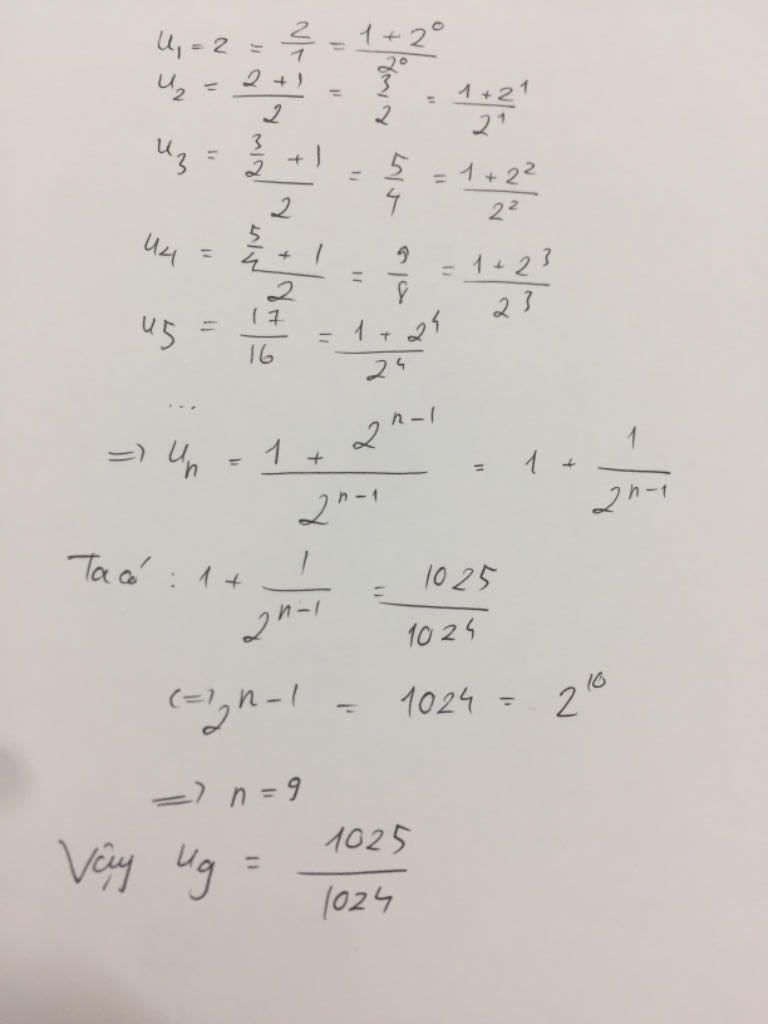 u₁ = 2 = 2/1 = (1 + 2⁰)/2⁰
u₂ = (2 + 1)/2 = 3/2 = (1 + 2¹)/2¹
u₃ = (3/2 + 1)/2 = 5/4 = (1 + 2²)/2²
u₄ = (5/4 + 1)/2 = 9/8 = (1 + 2³)/2³
u₅ = 17/16 = (1 + 2⁴)/2⁴
...
=> uₙ = (1 + 2ⁿ⁻¹)/2ⁿ⁻¹ = 1 + 1/2ⁿ⁻¹
Ta có : 1 + 1/2ⁿ⁻¹ = 1025/1024
<=> 2ⁿ⁻¹ = 1024 = 2¹⁰
=> n = 9
Vậy u₉ = 1025/1024